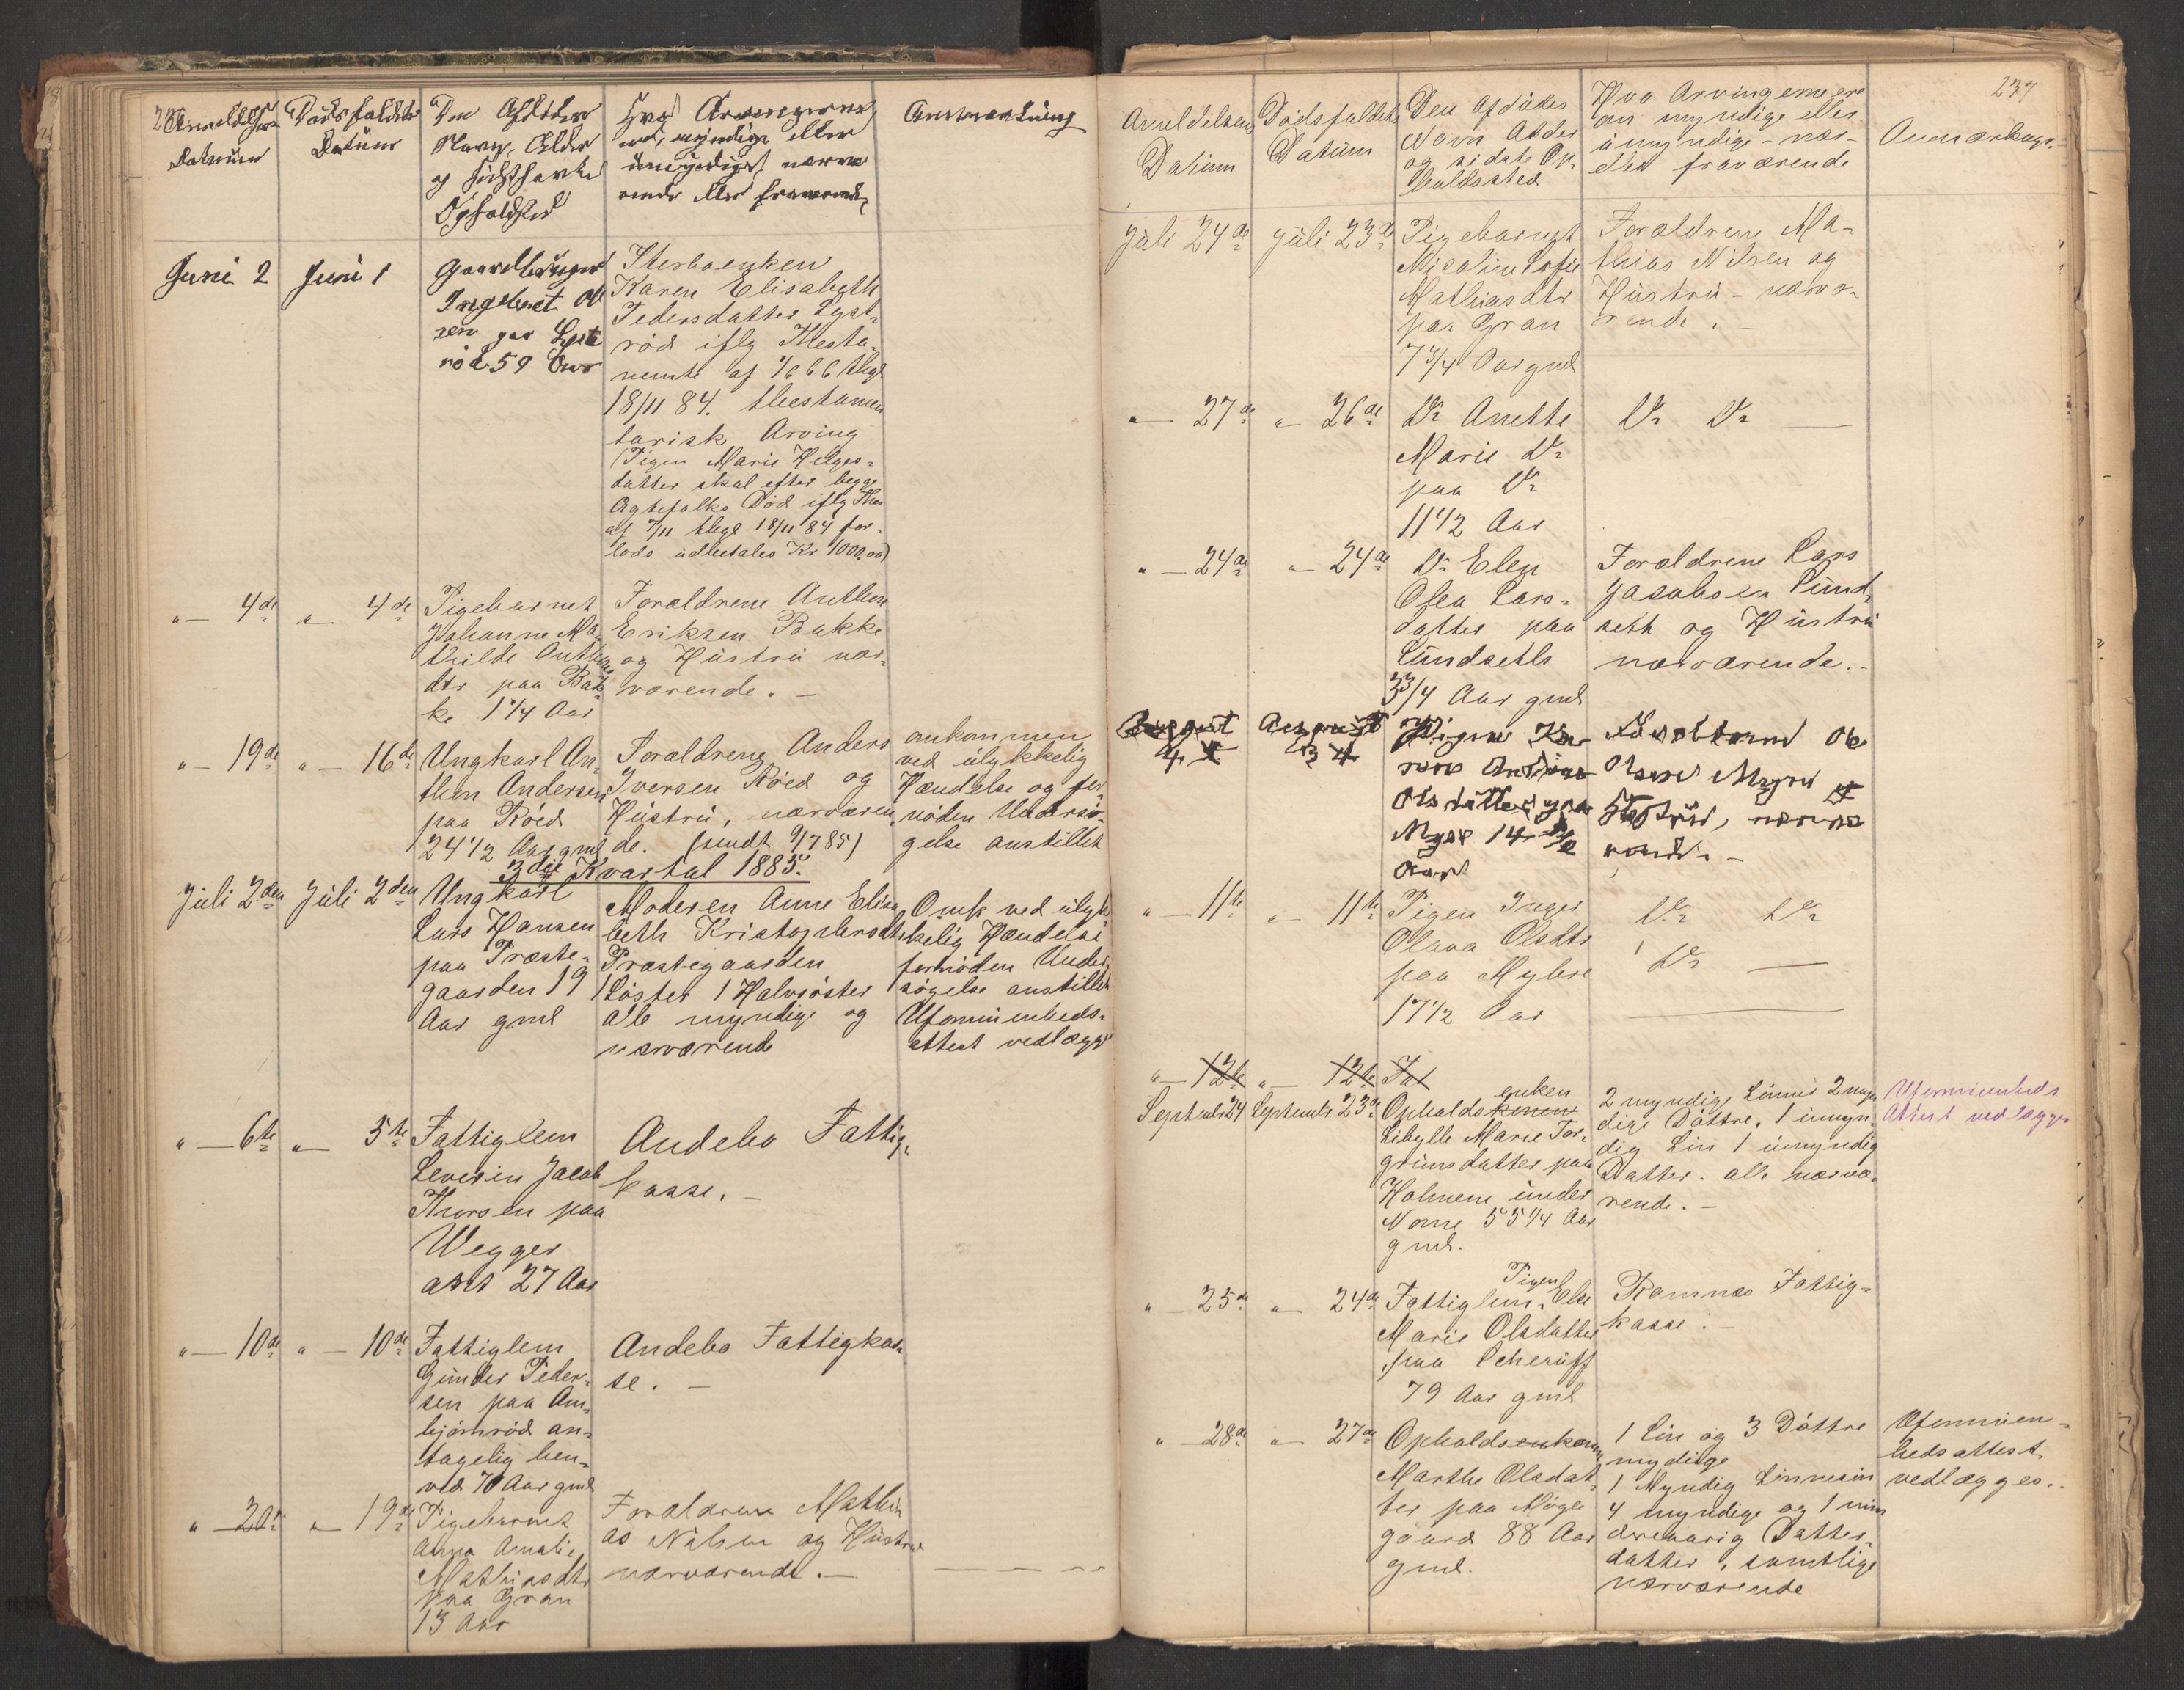 Anmeldelsens
Datum
Dødsfaldets
Datum
Den Afdødes
Navn, Alder
og sidst havte
Opholdsted
Hvo Arvingerne
ere, myndige eller
umyndige, nærvæ
rende eller fraværende
Anmærkning
Juni 2
Juni 1
Gaardbruger
Ingebret Ol
sen paa Lyst
röd 59 Aar
Sterboenken
Karen Elisabeth
Pedersdatter Lyst-
röd iflg Thesta-
mente af 1866 thlgl
18/11 84. thestamen
tarisk Arving
(Pigen Marie Helges-
datter skal efter begge
Ægtefolks Död iflg Thes
af 7/11 thlgl 18/11 84 for-
lods udbetales Kr 1000.00)
" — 4de
" — 4de
Pigebarnet
Johanne Ma-
thilde Anthons
dtr paa Bak-
ke 1 1/4 Aar
Forældrene Anthon
Eriksen Bakke
og Hustru nær-
værende. —
" — 19de
" — 16de
Ungkarl An-
thon Andersen
paa Röed
24 1/2 Aar gml
Forældrene Anders
Iversen Röed og
Hustru, nærværen-
de. (sendt 9/7 85)
omkommen
ved ulykkelig
Hændelse og for-
nöden Undersö-
gelse anstillet
3die Kvartal 1885.
Juli 2den
Juli 2den
Ungkarl
Lars Hansen
paa Præste-
gaarden 19
Aar gml
Moderen Anne Elisa
beth Kristophersdtr
Præstegaarden
1 Söster 1 Halvsöster
alle myndige og
nærværende
Omk ved ulyk-
kelig Hændelse
fornöden Under-
sögelse anstillet
Uformuenheds-
attest vedlægges
" — 6te
" — 5te
Fattiglem
Severin Jacob
Thorsen paa
Wegger
asst 27 Aar
Andebo Fattig-
kasse. —
" — 10de
" — 10de
Fattiglem
Gunder Peder-
sen paa Am-
björnröd an-
tagelig hen-
ved 70 Aar gml
Andebo Fattigkas-
se. —
" — 20de
" — 19de
Pigebarnet
Anna Amalie
Mathiasdtr
paa Gran
13 Aar
Forældrene Mathi
as Nilsen og Hustru
nærværende. —
237
Anmeldelsens
Datum
Dödsfaldets
Datum
Den Afdödes
Navn Alder
og sidste Op-
holdssted
Hvo Arvingerne ere
om myndige eller
umyndige - nær-
eller fraværende
Anmærkninger
Juli 24de
Juli 23de
Pigebarnet
Nicoline Sofie
Mathiasdtr
paa Gran
7 3/4 Aar gml
Forældrene Ma-
thias Nilsen og
Hustru - nærvæ-
rende. —
" — 27de
" — 26de
Do Anette
Marie Do
paa Do
11 1/2 Aar
Do Do —
" — 24de
" — 24de
Do Elen
Olea Lars-
datter paa
Lundseth
3 3/4 Aar gml
Forældrene Lars
Jacobsen Lund-
seth og Hustru
nærværende. —
August
4
August
3
Pigen Ka
ren
Olsdatter paa
14 1/2
Aar
Forældrene Ole
Olsen og
Hustru, nærvæ
rende. —
" — 11te
" — 11te
Pigen Inger
Olava Olsdtr
paa Myhre
17 1/2 Aar
Do Do
Do —
" — 12te
" — 12te
Fat
Septembr 24
Septembr 23de
enken
Opholdskonen
Sibylle Marie Tor-
grimsdatter paa
Holmene under
Nome 55 1/4 Aar
gml.
2 myndige Sönner 2 myn
dige Döttre, 1 umyn-
dig Sön 1 umyndig
Datter. alle nærvæ-
rende. —
Uformuenheds
Attest vedlægges
" — 25de
" — 24de
Pigen
Fattiglem Else
Marie Olsdatter
paa Scheruff
79 Aar gml
Ramnæs Fattig-
kasse. —
" — 28de
" — 27de
Opholdsenken
Marthe Olsdat-
ter paa Möge
gaard 88 Aar
gml.
1 Sön og 3 Döttre
mydige
1 Myndig Sönnesön
4 myndige og 1 min
dreaarig Datter-
datter, samtlige
nærværende
Uformuen-
hedsattest
vedlægges.